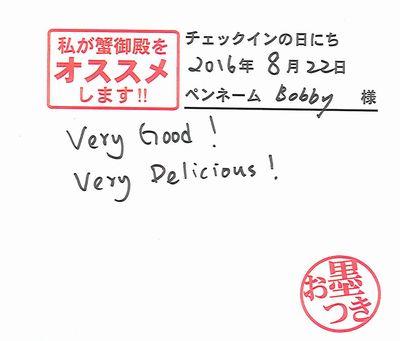 私が蟹御殿を
オススメ
します!!
チェックインの日にち
2016年 8月22日
ペンネーム Bobby 様
Very Good!
Very Delicious!
お墨
つき